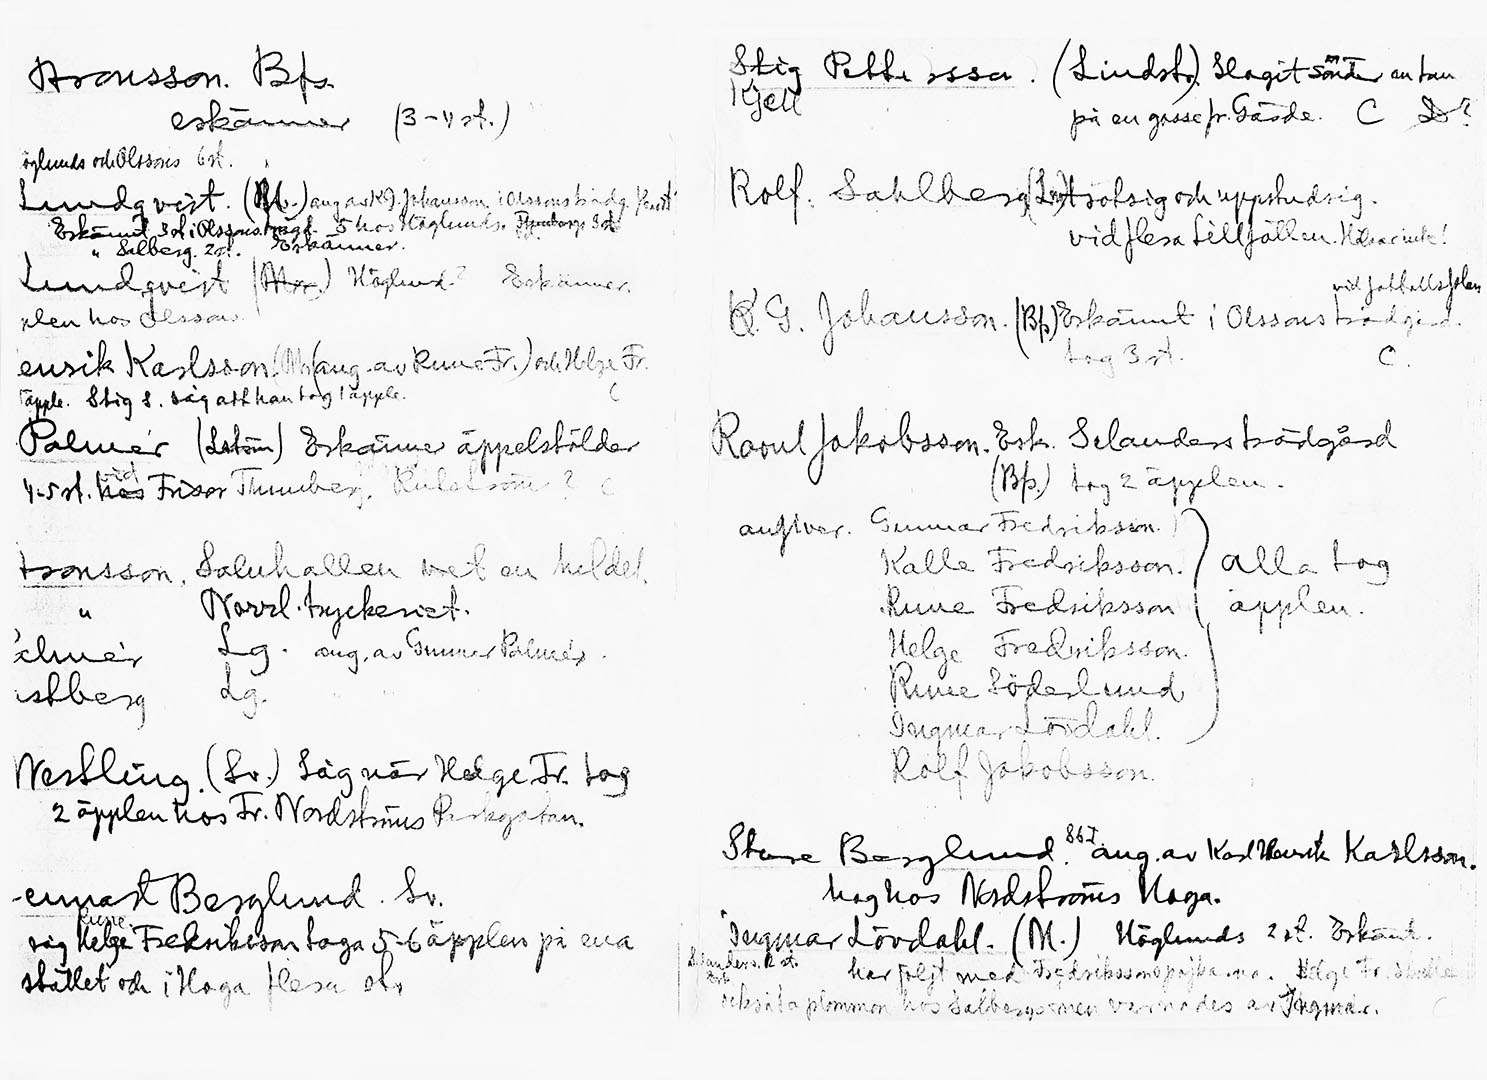 Aronsson. Bfs.
erkänner (3-4 st.)
öglunds och Olssons 6 st.
Lundqvist. (M.) ang av K.G. Johansson i Olssons trädg.
Erkänt 3 st i Olssons trägd. 5 hos Höglunds. 3 st
" Salberg. 2 st. Erkänner.
Lundqvist (Mr.) Höglund? Erkänner.
plen hos Olssons.
enrik Karlsson. (M) (ang. av Rune Fr.) och Helge Fr.
1 äpple. Stig S. såg att han tog 1 äpple. C
Palmér (Lström) Erkänner äppelstölder
4-5 st. hos vid Frisör Thunberg. ? C
Aronsson. Saluhallen vet en hel del.
" Norrl. tryckeriet.
almér Lg. ang. av Gunnar Palmér.
stberg Lg.
Westling. (Sv.) Såg när Helge Fr. tog
2 äpplen hos Fr. Nordströms Parkgatan.
ennart Berglund. Sv.
Rune
såg Helge Fredriksson taga 5-6 äpplen på ena
stället och i Haga flera st.
Stig Pettersson. (Lindstr.) Slagit sönder en tan
Kjell
på en gosse fr. Gärde. C D?
Rolf. Sahlberg (Lg) trotsig och uppstudsig.
vid flera tillfällen. Hälsar inte!
vid fotbollsplan
K. G. Johansson. (Bfs) Erkänt i Olssons trädgård.
tog 3 st. C.
Raoul Jakobsson. Erk. Selanders trädgård
(Bfs.) tog 2 äpplen.
angiver. Gunnar Fredriksson.
Kalle Fredriksson. alla tog
Rune Fredriksson äpplen.
Helge Fredriksson.
Rune Söderlund
Ingmar Lövdahl.
Rolf Jakobsson.
Sture Berglund. Sb I ang. av Karl Henrik Karlsson.
tog hos Nordströms Haga.
Ingmar Lövdahl. (M.) Höglunds 2 st. Erkänt.
Selanders. 2 st. har följt med Fredrikssonspojkarna. Helge Fr. skulle
Erk
också ta plommon hos Salbergs men varnades av Ingmar. C